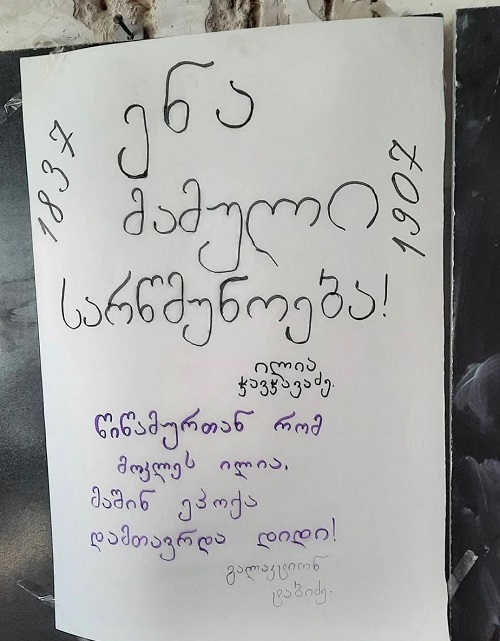 1837
ენა
1907
მამული
სარწმუნოება!
ილია
ჭავჭავაძე.
წიწამურთან რომ
მოკლეს ილია.
მაშინ ეპოქა
დამთავრდა დიდი!
გალაკტიონ
ტაბიძე.